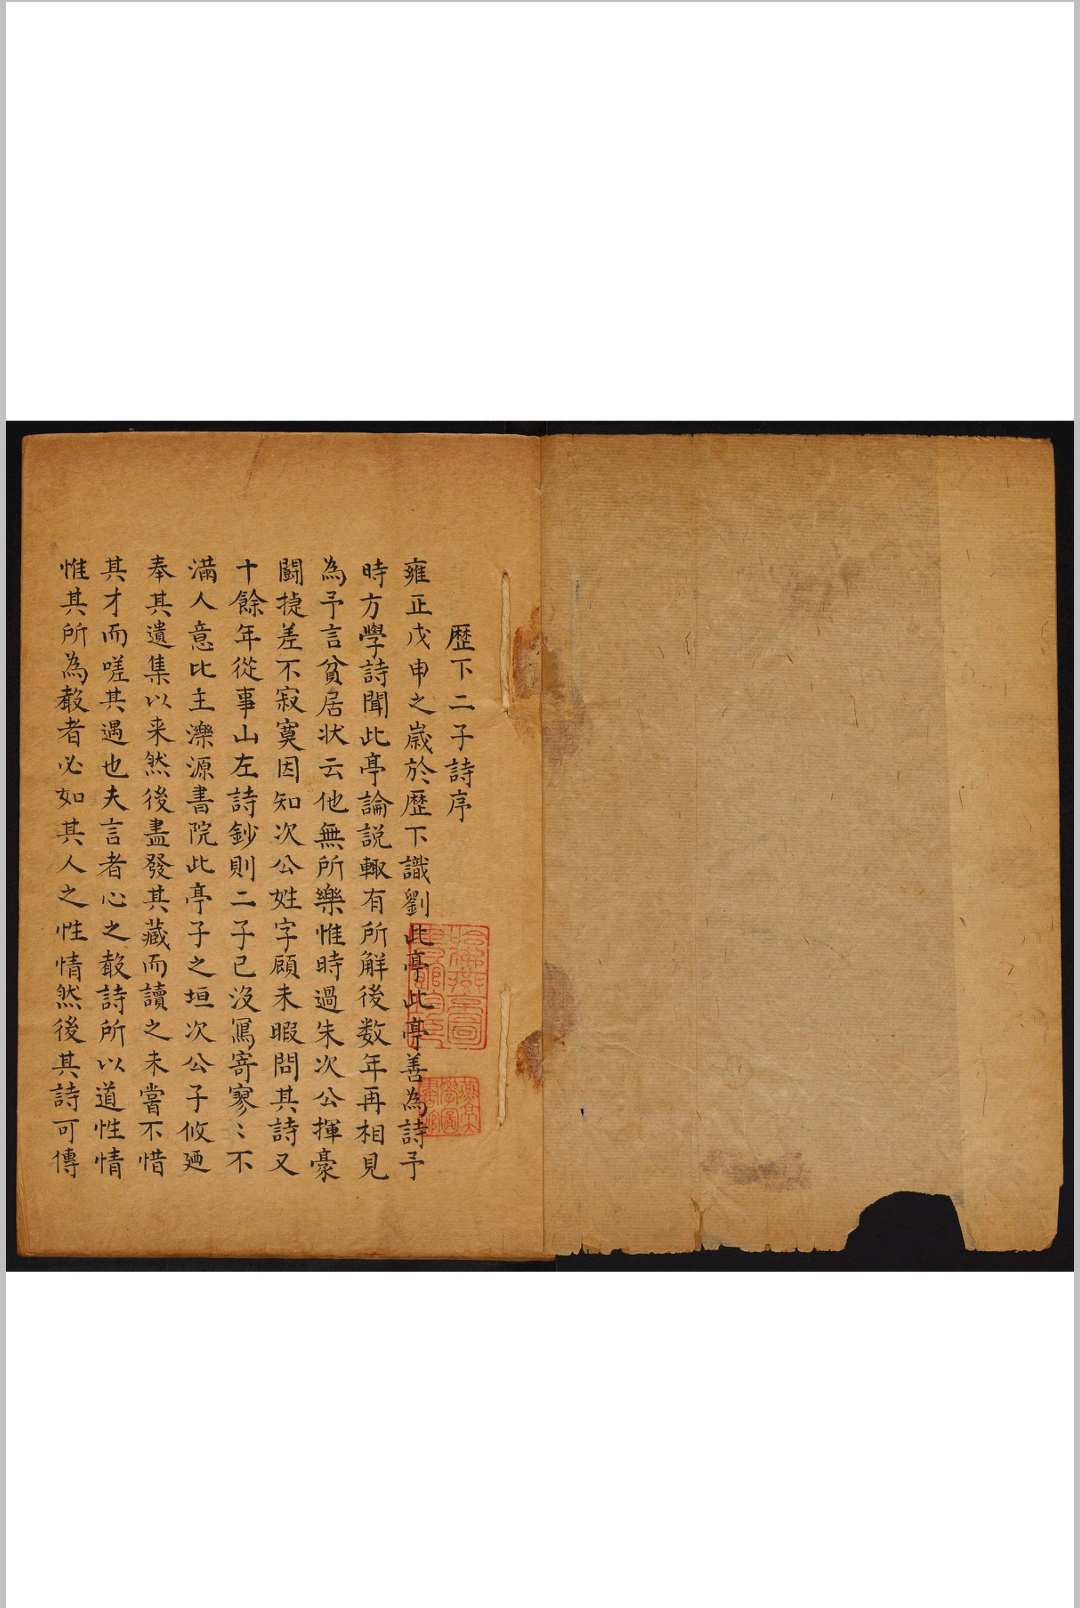 歷下二子詩序
雍正戊申之歲於歷下識劉此亭此亭善為詩予
時方學詩聞此亭論説輙有所觧後数年再相見
為予言貧居状云他無所樂惟時過朱次公揮豪
鬪捷差不寂寞因知次公姓字顧未暇問其詩又
十餘年從事山左詩鈔則二子已沒寫寄寥〻不
滿人意比主濼源書院此亭子之垣次公子攸廼
奉其遺集以来然後盡發其藏而讀之未嘗不惜
其才而嗟其遇也夫言者心之聲詩所以道性情
惟其所為聲者必如其人之性情然後其詩可傳